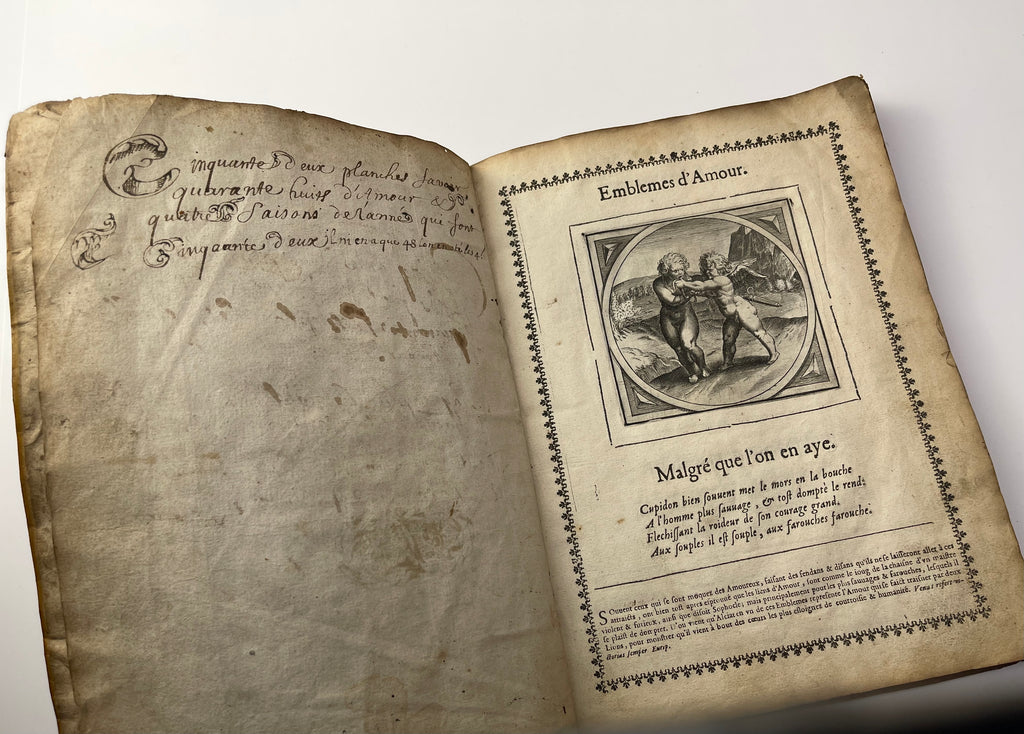 Cinquante Deux planches savoir
quarante huits d'Amour & Les
quatre Saisons de lanneé qui font
Cinquante deux il men a que 48
Emblemes d'Amour.
Malgré que l'on en aye.
Cupidon bien souuent met le mors en la bouche
A l'homme plus sauuage, & tost dompte le rend:
Flechissant la roideur de son courage grand,
Aux souples il est souple, aux farouches farouche.
SOuuent ceux qui se sont moqués des Amoureux, faisant des fendans & disans qu'ils ne se laisseront aller à ces
attraicts, ont bien tost apres esprouué que les liens d'Amour, sont comme le ioug de la chaisne d'vn maistre
violent & furieux, ainsi que disoit Sophocle; mais principalement pour les plus sauuages & farouches, lesquels il
se plaist de dompter. D'où vient qu'Alciat en vn de ces Emblemes represente l'Amour qui se faict traisner par deux
Lions, pour monstrer qu'il vient à bout des cœurs les plus esloignés de courtoisie & humanité. Venus
semper Eurip.